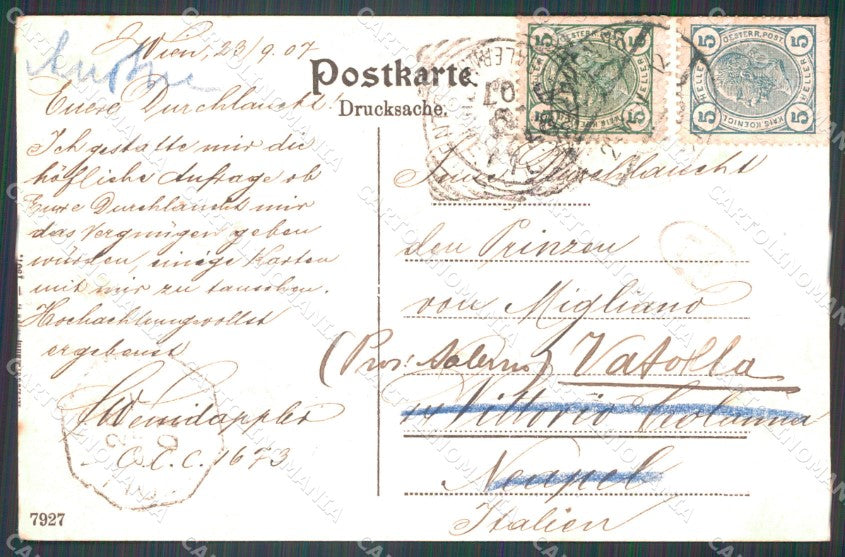 Wien, 23/9.07
Postkarte
Drucksache.
Euere Durchlaucht!
Ich gestatte mir die
höfliche Anfrage ob
Euere Durchlaucht mir
das Vergnügen geben
würden einige Karten
mit mir zu tauschen.
Hochachtungsvollst
ergebenst
C.C.C. 1673
7927
5 OESTERR. POST 5
5 HELLER 5
Durchlaucht
den Prinzen
von Migliano
(Prov: Salerno) Vatolla
Vittorio Colonna
Neapel
Italien
CARTOLINOMANIA